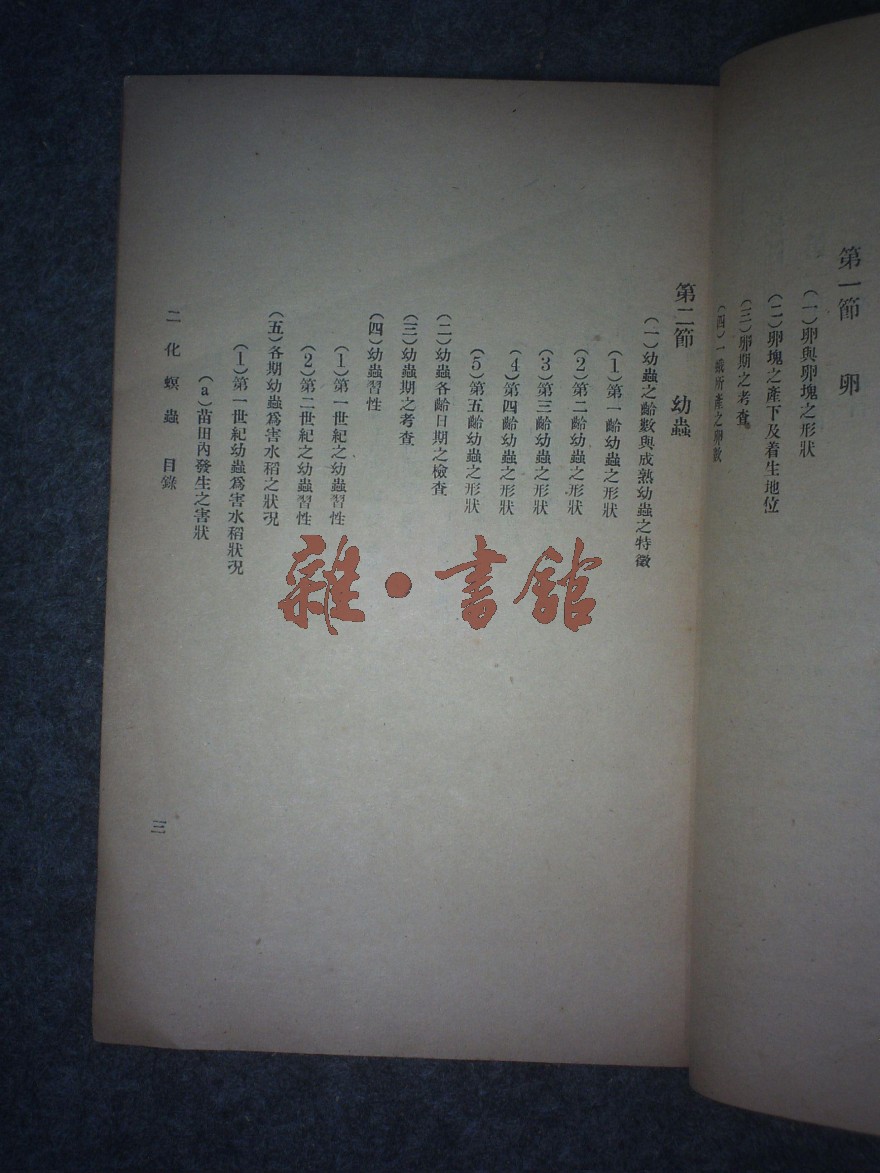 第一節　卵
(一)卵與卵塊之形狀
(二)卵塊之產下及着生地位
(三)卵期之考查
(四)一蛾所產之卵數
第二節　幼蟲
(一)幼蟲之齡數與成熟幼蟲之特徵
(1)第一齡幼蟲之形狀
(2)第二齡幼蟲之形狀
(3)第三齡幼蟲之形狀
(4)第四齡幼蟲之形狀
(5)第五齡幼蟲之形狀
(二)幼蟲各齡日期之檢查
(三)幼蟲期之考查
(四)幼蟲習性
(1)第一世紀之幼蟲習性
(2)第二世紀之幼蟲習性
(五)各期幼蟲爲害水稻之狀況
(1)第一世紀幼蟲爲害水稻狀況
(a)苗田內發生之害狀
二化螟蟲　目錄
三
雜·書館